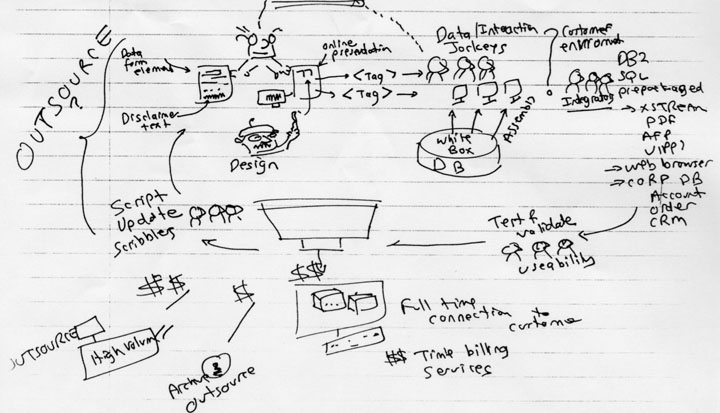 OUTSOURCE
?
Data
form
element
Disclaimer
text
Design
online
presentation
<Tag>
<Tag>
Data/Interaction
Jockeys
White
Box
DB
Assembly
Customer
environment
Integrators
DB2
SQL
prepackaged
→ XSTREAM
PDF
AFP
→ web browser
→ CORP DB
Account
order
CRM
Test &
validate
useability
Script
Update
Scribblers
$$
$$
$
OUTSOURCE
High Volume
Archive
OUTSOURCE
Full time
connection to
customer
$$ Time billing
services